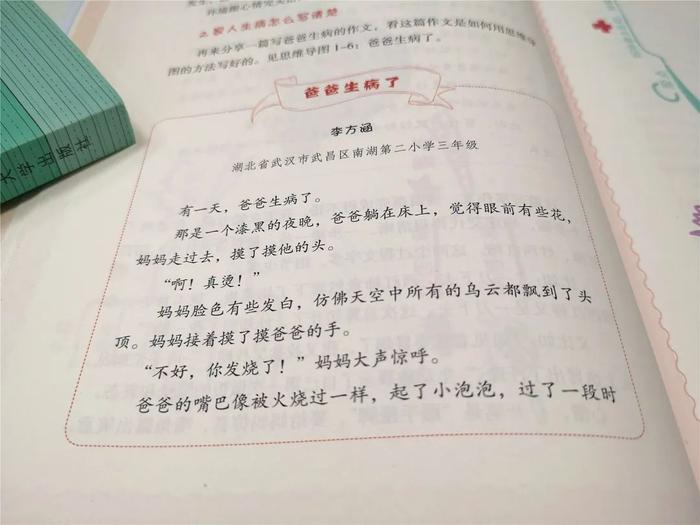 孙瑞擦心情完美
2.家人生病怎么写清楚
再来分享一篇写爸爸生病的作文，看这篇作文是如何用思维导
图的方法写好的。见思维导图1-6：爸爸生病了。
爸爸生病了
李方涵
湖北省武汉市武昌区南湖第二小学三年级
有一天，爸爸生病了。
那是一个漆黑的夜晚，爸爸躺在床上，觉得眼前有些花，
妈妈走过去，摸了摸他的头。
“啊！真烫！”
妈妈脸色有些发白，仿佛天空中所有的乌云都飘到了头
顶。妈妈接着摸了摸爸爸的手。
“不好，你发烧了！”妈妈大声惊呼。
爸爸的嘴巴像被火烧过一样，起了小泡泡，过了一段时
大学出版社